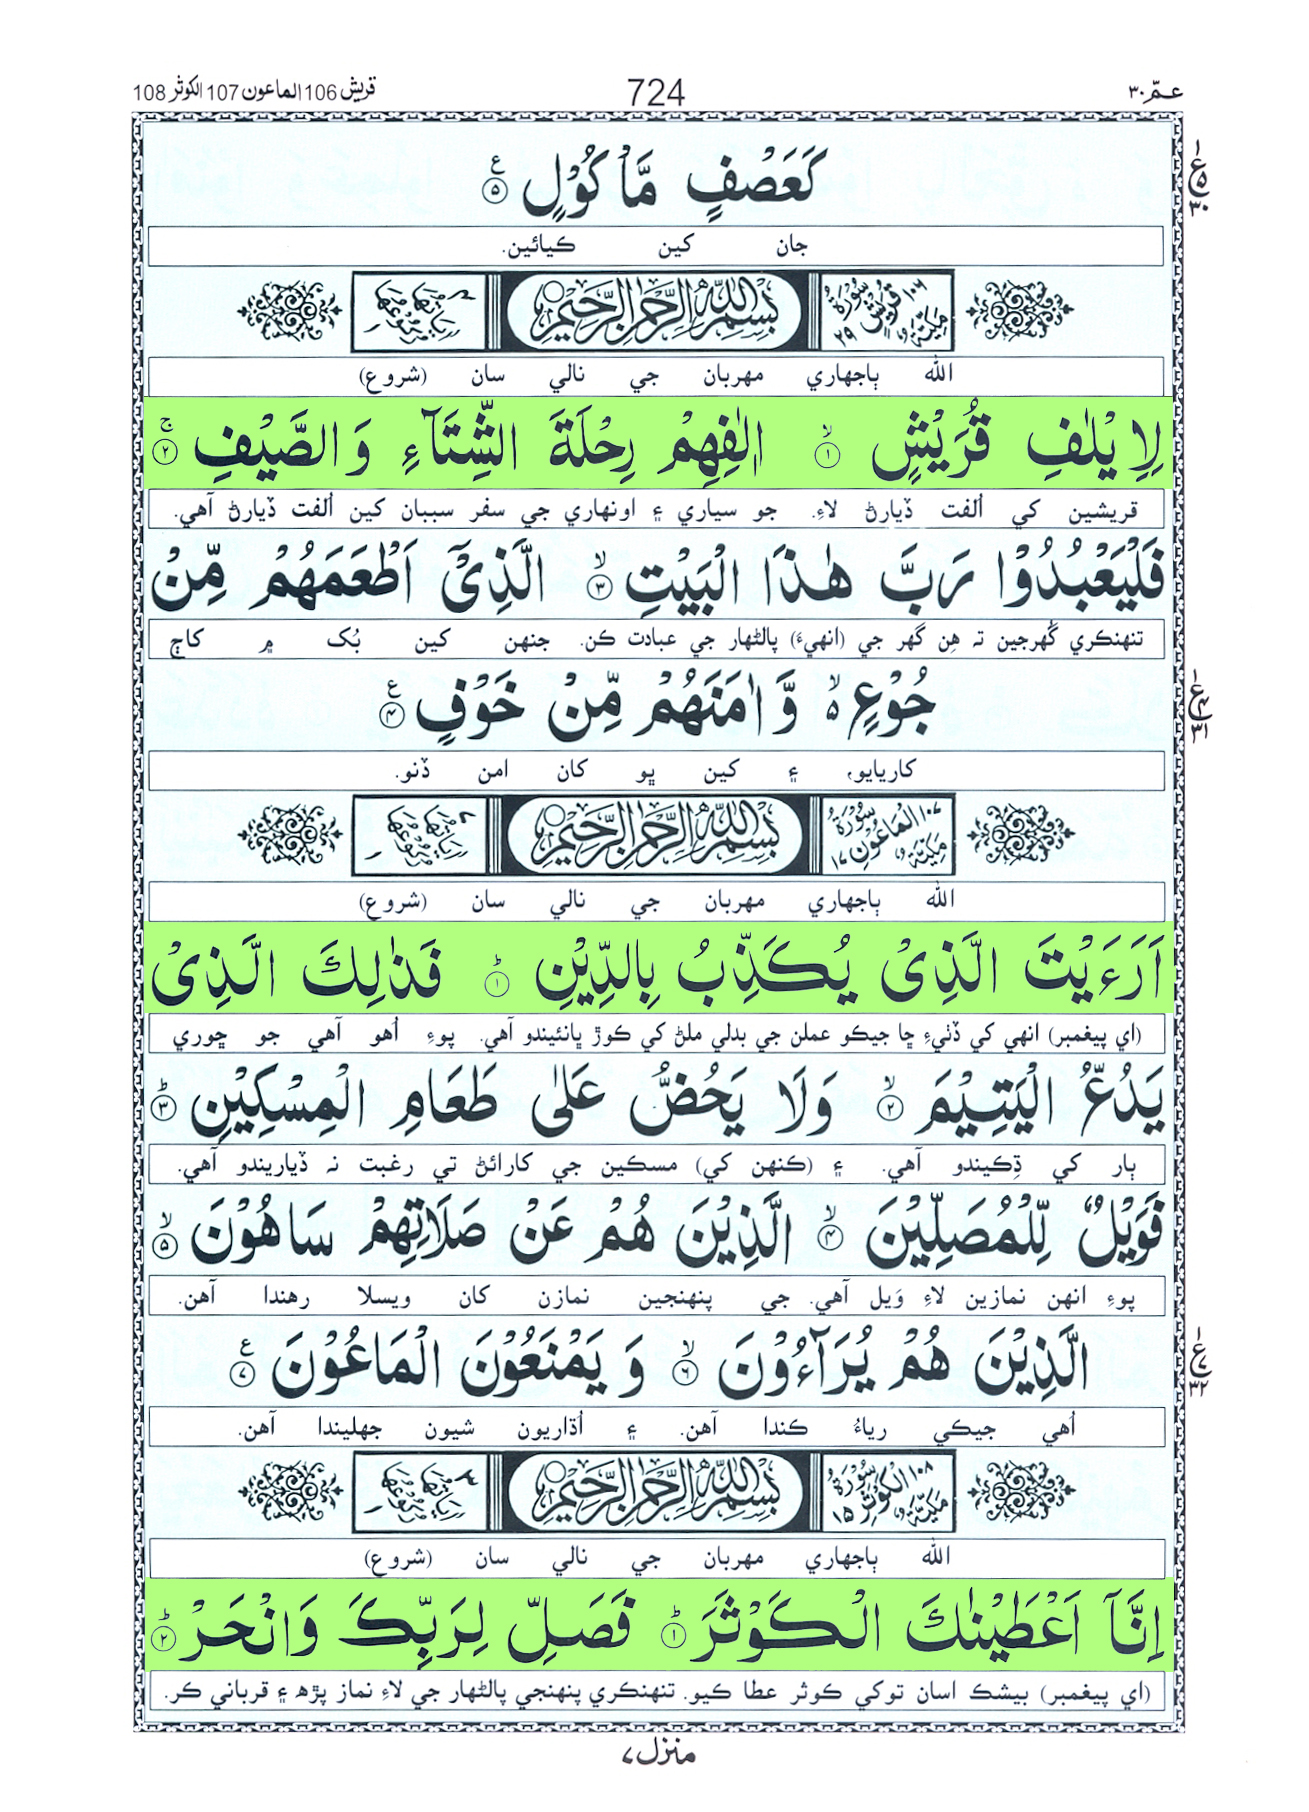 قريش106 الماعون107 الكوثر108 724 عـمّ٣٠
كَعَصْفٍ مَّاْكُوْلٍ ۝٥ ع
جان کين ڪيائين.
ع ١ ٥ ٣٠
سُوْرَةُ قُرَيْشٍ مَكِّيَّةٌ ١٠٦ ٢٩ بِسْمِ اللّٰهِ الرَّحْمٰنِ الرَّحِيْمِ اٰيَاتُهَا ٤ رُكُوْعُهَا ١
الله ٻاجھاري مھربان جي نالي سان (شروع)
لِاِيْلٰفِ قُرَيْشٍ ۝١ۙ اٖلٰفِهِمْ رِحْلَةَ الشِّتَآءِ وَالصَّيْفِ ۝٢ۚ
قريشين کي اُلفت ڏيارڻ لاءِ. جو سياري ۽ اونھاري جي سفر سببان کين اُلفت ڏيارڻ آھي.
فَلْيَعْبُدُوْا رَبَّ هٰذَا الْبَيْتِ ۝٣ۙ الَّذِيْٓ اَطْعَمَهُمْ مِّنْ
تنھنڪري گُھرجين تہ ھِن گھر جي (انھيءَ) پالڻھار جي عبادت ڪن. جنھن کين بُک ۾ کاڄ
جُوْعٍ ۙ۬ وَّاٰمَنَهُمْ مِّنْ خَوْفٍ ۝٤ ع
کاريايو، ۽ کين ڀو کان امن ڏنو.
ع ١ ٤ ٣١
سُوْرَةُ الْمَاعُوْنِ مَكِّيَّةٌ ١٠٧ ١٧ بِسْمِ اللّٰهِ الرَّحْمٰنِ الرَّحِيْمِ اٰيَاتُهَا ٧ رُكُوْعُهَا ١
الله ٻاجھاري مھربان جي نالي سان (شروع)
اَرَءَيْتَ الَّذِيْ يُكَذِّبُ بِالدِّيْنِ ۝١ؕ فَذٰلِكَ الَّذِيْ
(اي پيغمبر) انھي کي ڏٺيءِ ڇا جيڪو عملن جي بدلي ملڻ کي ڪوڙ ڀانئيندو آھي. پوءِ اُھو آھي جو ڇوري
يَدُعُّ الْيَتِيْمَ ۝٢ۙ وَلَا يَحُضُّ عَلٰى طَعَامِ الْمِسْكِيْنِ ۝٣ؕ
ٻار کي ڌِڪيندو آھي. ۽ (ڪنھن کي) مسڪين جي کارائڻ تي رغبت نہ ڏياريندو آھي.
فَوَيْلٌ لِّلْمُصَلِّيْنَ ۝٤ۙ الَّذِيْنَ هُمْ عَنْ صَلَاتِهِمْ سَاهُوْنَ ۝٥ۙ
پوءِ انھن نمازين لاءِ وَيل آھي. جي پنھنجين نمازن کان ويسلا رھندا آھن.
الَّذِيْنَ هُمْ يُرَآءُوْنَ ۝٦ۙ وَيَمْنَعُوْنَ الْمَاعُوْنَ ۝٧ ع
اُھي جيڪي رياءُ ڪندا آھن. ۽ اُڌاريون شيون جھليندا آھن.
ع ١ ٧ ٣٢
سُوْرَةُ الْكَوْثَرِ مَكِّيَّةٌ ١٠٨ ١٥ بِسْمِ اللّٰهِ الرَّحْمٰنِ الرَّحِيْمِ اٰيَاتُهَا ٣ رُكُوْعُهَا ١
الله ٻاجھاري مھربان جي نالي سان (شروع)
اِنَّآ اَعْطَيْنٰكَ الْكَوْثَرَ ۝١ؕ فَصَلِّ لِرَبِّكَ وَانْحَرْ ۝٢ؕ
(اي پيغمبر) بيشڪ اسان توکي ڪوثر عطا ڪيو. تنھنڪري پنھنجي پالڻھار جي لاءِ نماز پڙھ ۽ قرباني ڪر.
منزل ٧